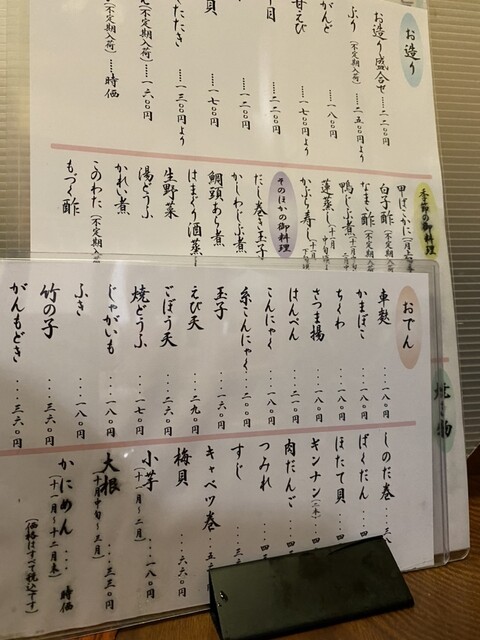 お造り
お造り盛合せ……二二〇〇円
ぶり(不定期入荷)……二五〇〇円より
がんど……一八〇〇円
甘えび……一七〇〇円より
……二二〇〇円
……一二〇〇円
貝……一七〇〇円
たたき……一三〇〇円より
(不定期入荷)……一六〇〇円
(不定期入荷)……時価
季節の御料理
甲ばこかに
白子酢(不定期入荷)
なまこ酢(不定期入荷)
鴨じぶ煮
蓮蒸し
かぶら寿し
そのほかの御料理
だし巻き玉子
かしわじぶ煮
鯛頭あら煮
はまぐり酒蒸し
生野菜
湯どうふ
かれい煮
このわた(不定期入荷)
もづく酢
焼き物
おでん
車麩……一八〇円
かまぼこ……一八〇円
ちくわ……一八〇円
さつま揚……一八〇円
はんぺん……二一〇円
こんにゃく……一八〇円
糸こんにゃく……二〇〇円
玉子……一六〇円
えび天……二九〇円
ごぼう天……二六〇円
焼どうふ……一七〇円
じゃがいも……一八〇円
ふき……一八〇円
竹の子……三六〇円
がんもどき……三六〇円
しのだ巻
ばくだん
ほたて貝
ギンナン(二本)
肉だんご
つみれ
すじ
キャベツ巻
梅貝……六六〇円
小芋(十一月〜二月)……一八〇円
大根十月中旬〜三月……三三〇円
かにめん……時価
(十一月〜十二月末)
(価格はすべて税込です)